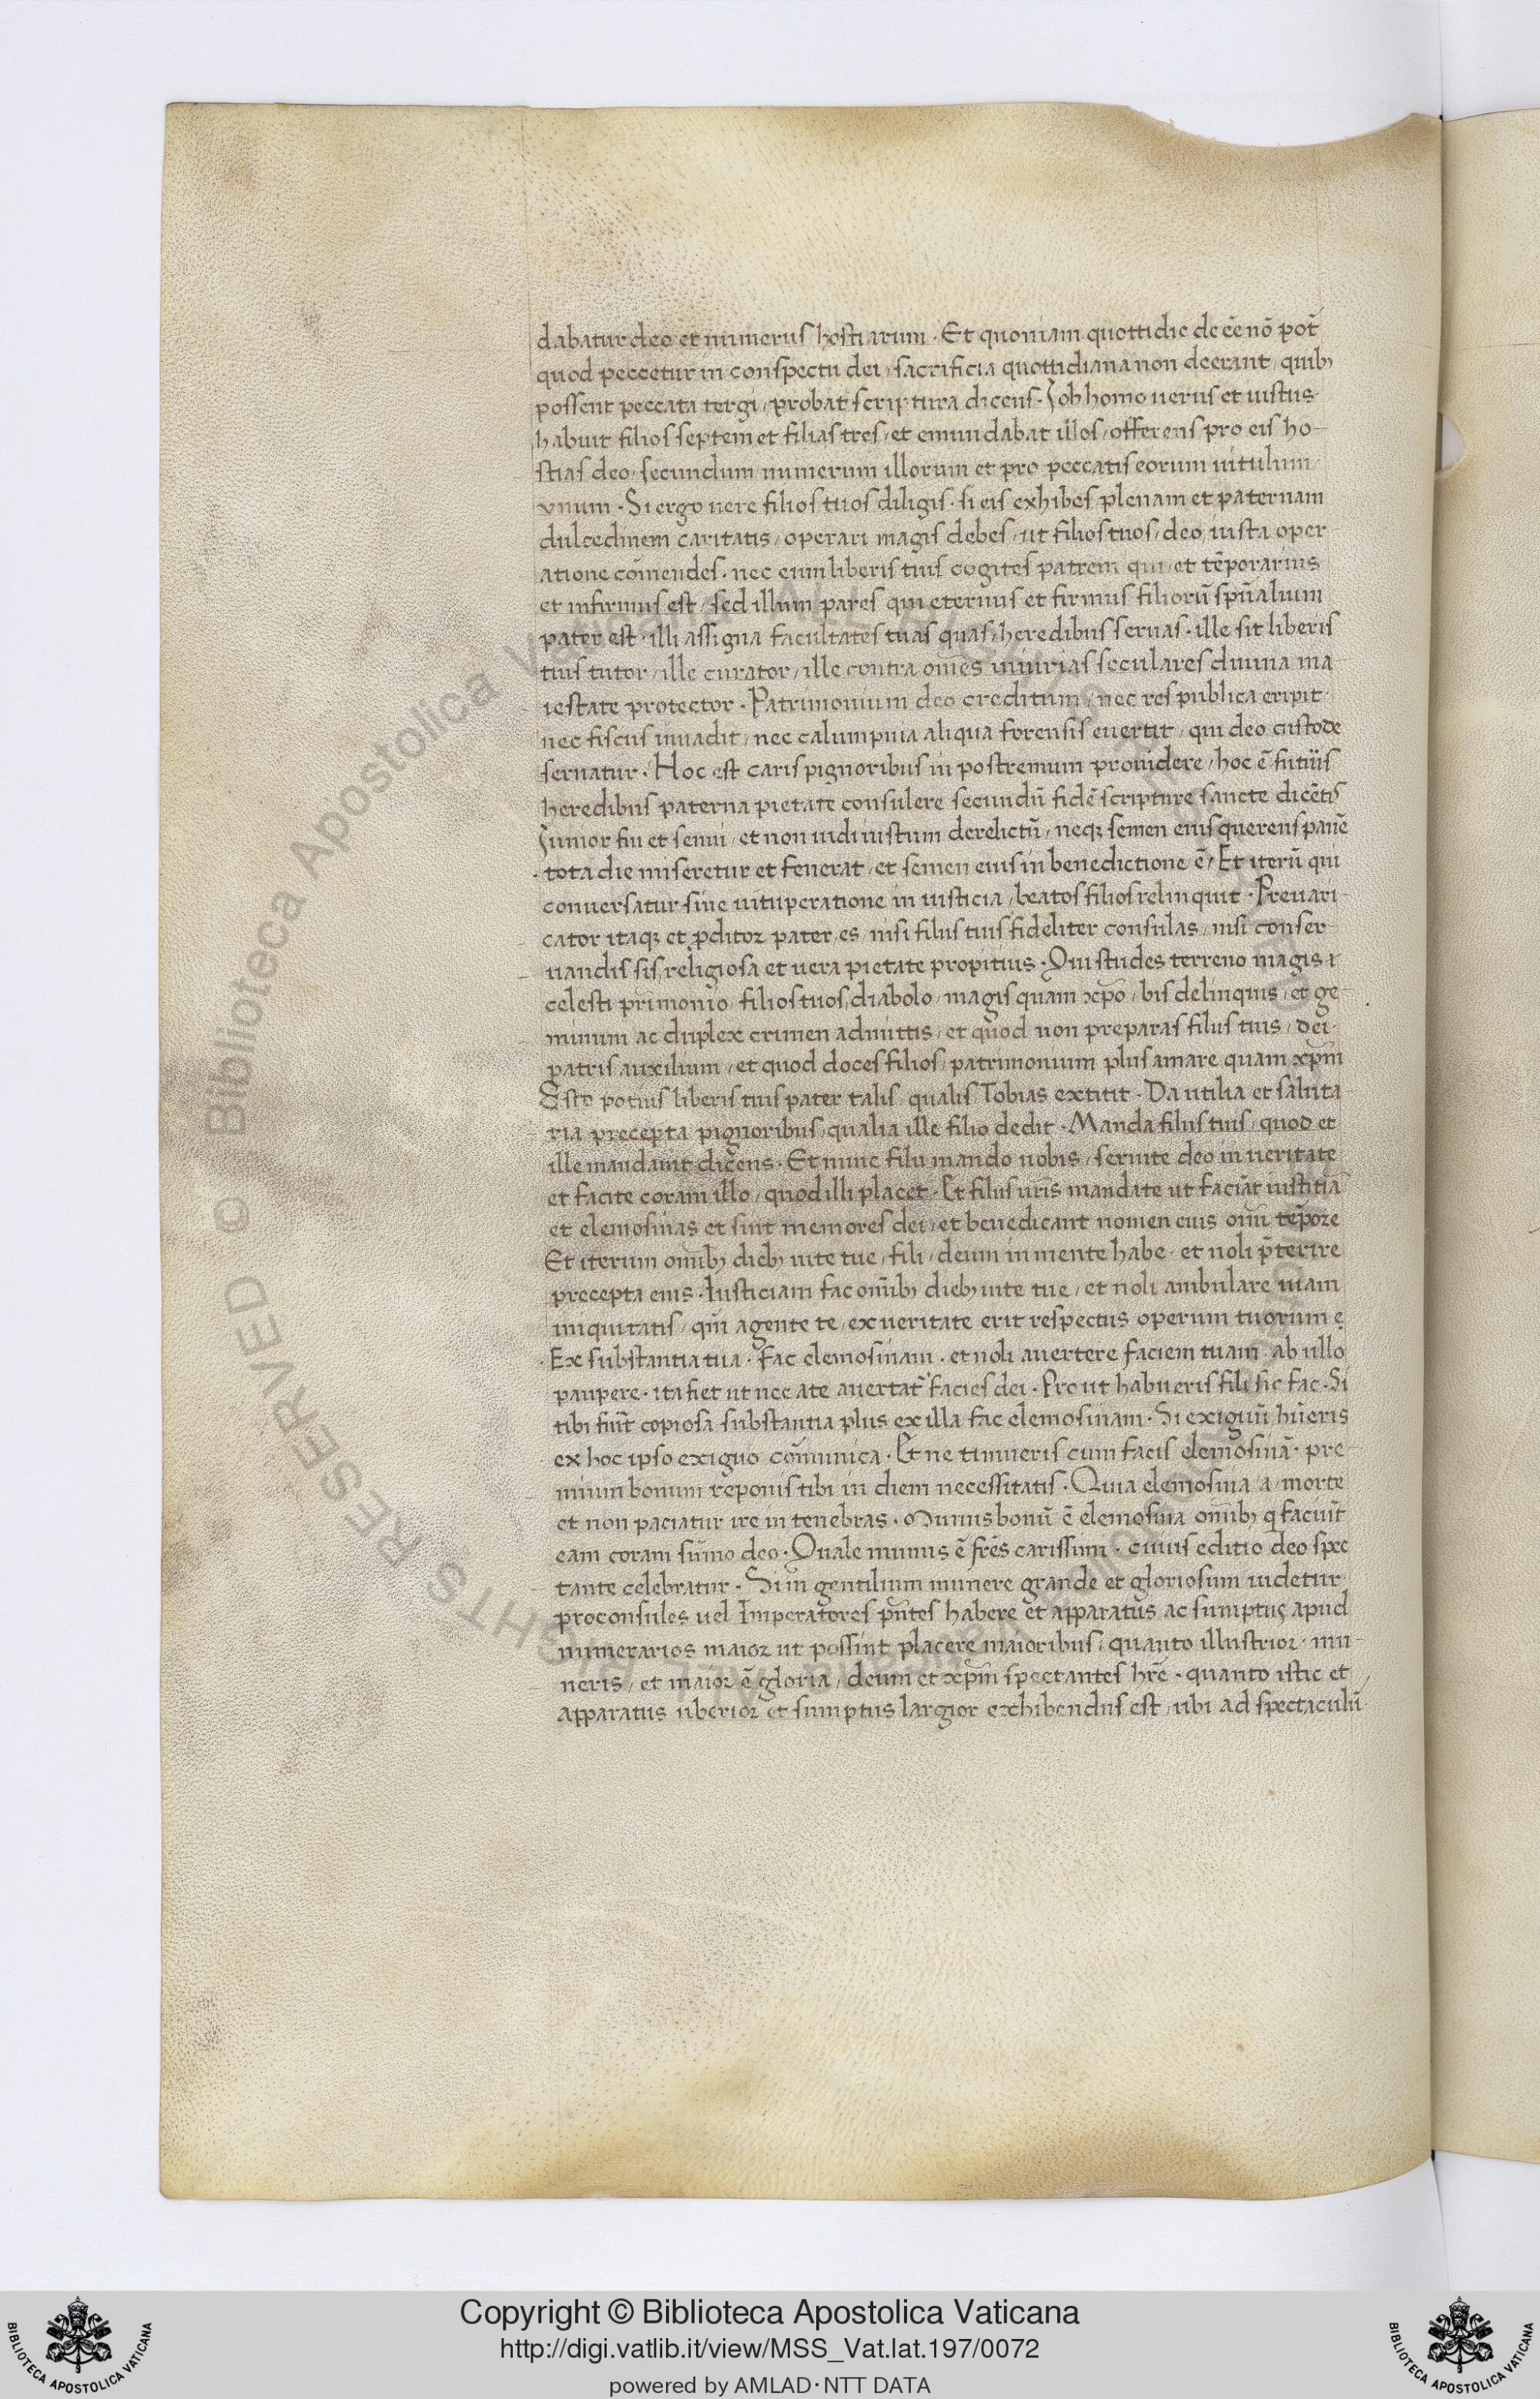 dabatur deo et numerus hostiarum · Et quoniam quottidie deēe nō pot̄
quod peccetur in conspectu dei / sacrificia quottidiana non deerant / quibꝫ
possent peccata tergi / probat scriptura dicens · Iob homo uerus et iustus
habuit filios septem et filias tres / et emundabat illos / offerens pro eis ho-
stias deo / secundum numerum illorum et pro peccatis eorum uitulum
vnum · Si ergo uere filios tuos diligis · si eis exhibes plenam et paternam
dulcedinem caritatis / operari magis debes / ut filios tuos / deo iusta oper-
atione cōmendes · nec eum liberis tuis cogites patrem qui et tēporarius
et infirmus est / sed illum pares qui eternus et firmus filiorū spūalium
pater est · illi assigna facultates tuas quas heredibus seruas · ille sit liberis
tuis tutor / ille curator / ille contra om̄es iniurias seculares diuina ma-
iestate protector · Patrimonium deo creditum / nec res publica eripit
nec fiscus inuadit / nec calumpnia aliqua forensis euertit / qui deo custode
seruatur · Hoc est caris pignoribus in postremum prouidere / hoc ē futuris
heredibus paterna pietate consulere secundū fidē scripture sancte dicētis
Iunior fui et senui / et non uidi iustum derelictū / neqꝫ semen eius querens panē
· tota die miseretur et fenerat / et semen eius in benedictione ē / Et iterū qui
conuersatur sine uituperatione in iusticia / beatos filios relinquit · Preuari-
cator itaqꝫ et ꝓditor pater es / nisi filiis tuis fideliter consulas / nisi conser-
uandis sis religiosa et uera pietate propitius · Qui studes terreno magis ꝛ
celesti pr̄imonio / filios tuos diabolo / magis quam xp̄o / bis delinquis / et ge-
minum ac duplex crimen admittis / et quod non preparas filiis tuis / dei
patris auxilium / et quod doces filios / patrimonium plus amare quam xp̄m
Esto potius liberis tuis pater talis / qualis Tobias extitit · Da utilia et saluta-
ria precepta pignoribus / qualia ille filio dedit · Manda filiis tuis / quod et
ille mandauit dicens · Et nunc filii mando uobis / seruite deo in ueritate
et facite coram illo / quod illi placet · Et filiis ur̄is mandate ut faciāt iustitiā
et elemosinas et sint memores dei / et benedicant nomen eius om̄i tēpore
Et iterum om̄ibꝫ diebꝫ uite tue / fili / deum in mente habe · et noli p̄terire
precepta eius · Iusticiam fac om̄ibꝫ diebꝫ uite tue / et noli ambulare uiam
iniquitatis / qm̄ agente te / ex ueritate erit respectus operum tuorum
· Ex substantia tua · fac elemosinam · et noli auertere faciem tuam ab ullo
paupere · ita fiet ut nec a te auertat̄ facies dei · Prout habueris fili sic fac · Si
tibi fuīt copiosa substantia plus ex illa fac elemosinam · Si exiguū hūeris
ex hoc ipso exiguo cōmunica · Et ne timueris cum facis elemosinā · pre-
mium bonum reponis tibi in diem necessitatis · Quia elemosina / a / morte
et non paciatur ire in tenebras · Munus bonū ē elemosina om̄ibꝫ q̄ faciūt
eam coram sūmo deo · Quale munus ē fr̄es carissimi · cuius editio deo spec
tante celebratur · Si in gentilium munere grande et gloriosum uidetur
proconsules uel Imperatores pn̄tes habere et apparatus ac sumptus apud
numerarios maior ut possint placere maioribus / quanto illustrior · mu-
neris / et maior ē gloria / deum et xp̄m spectantes hr̄e · quanto istic et
apparatus uberior et sumptus largior exhibendus est / ubi ad spectaculū
© Biblioteca Apostolica Vaticana
ALL RIGHTS RESERVED
Copyright © Biblioteca Apostolica Vaticana
http://digi.vatlib.it/view/MSS_Vat.lat.197/0072
powered by AMLAD·NTT DATA
BIBLIOTECA APOSTOLICA VATICANA
BIBLIOTECA APOSTOLICA VATICANA